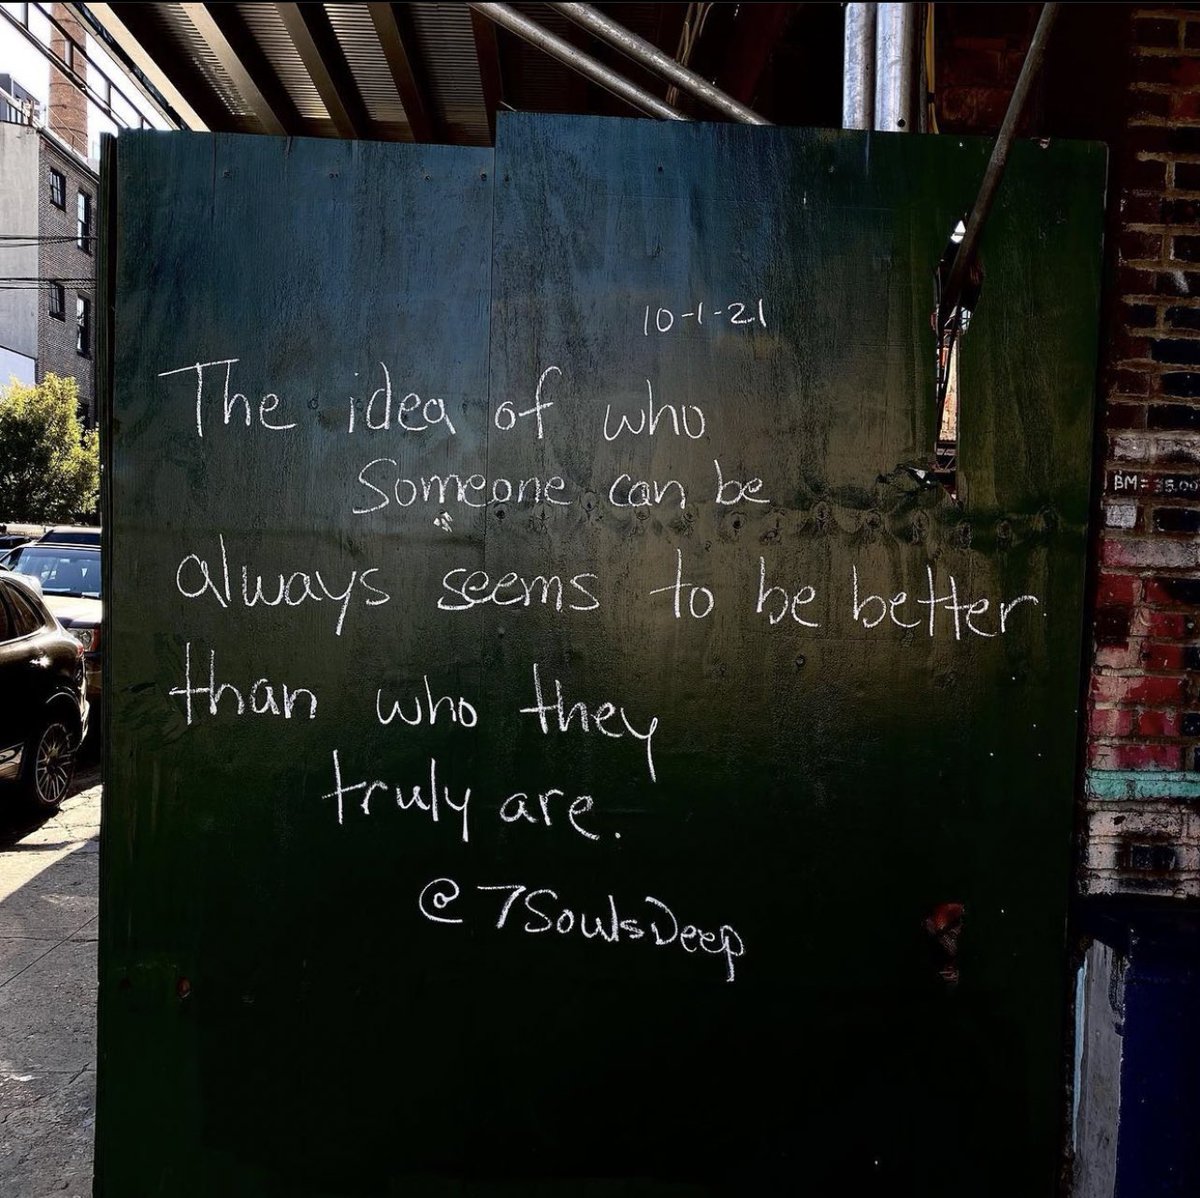 10-1-21
The idea of who
someone can be
always seems to be better
than who they
truly are.
@7SoulsDeep
BM= 35.00